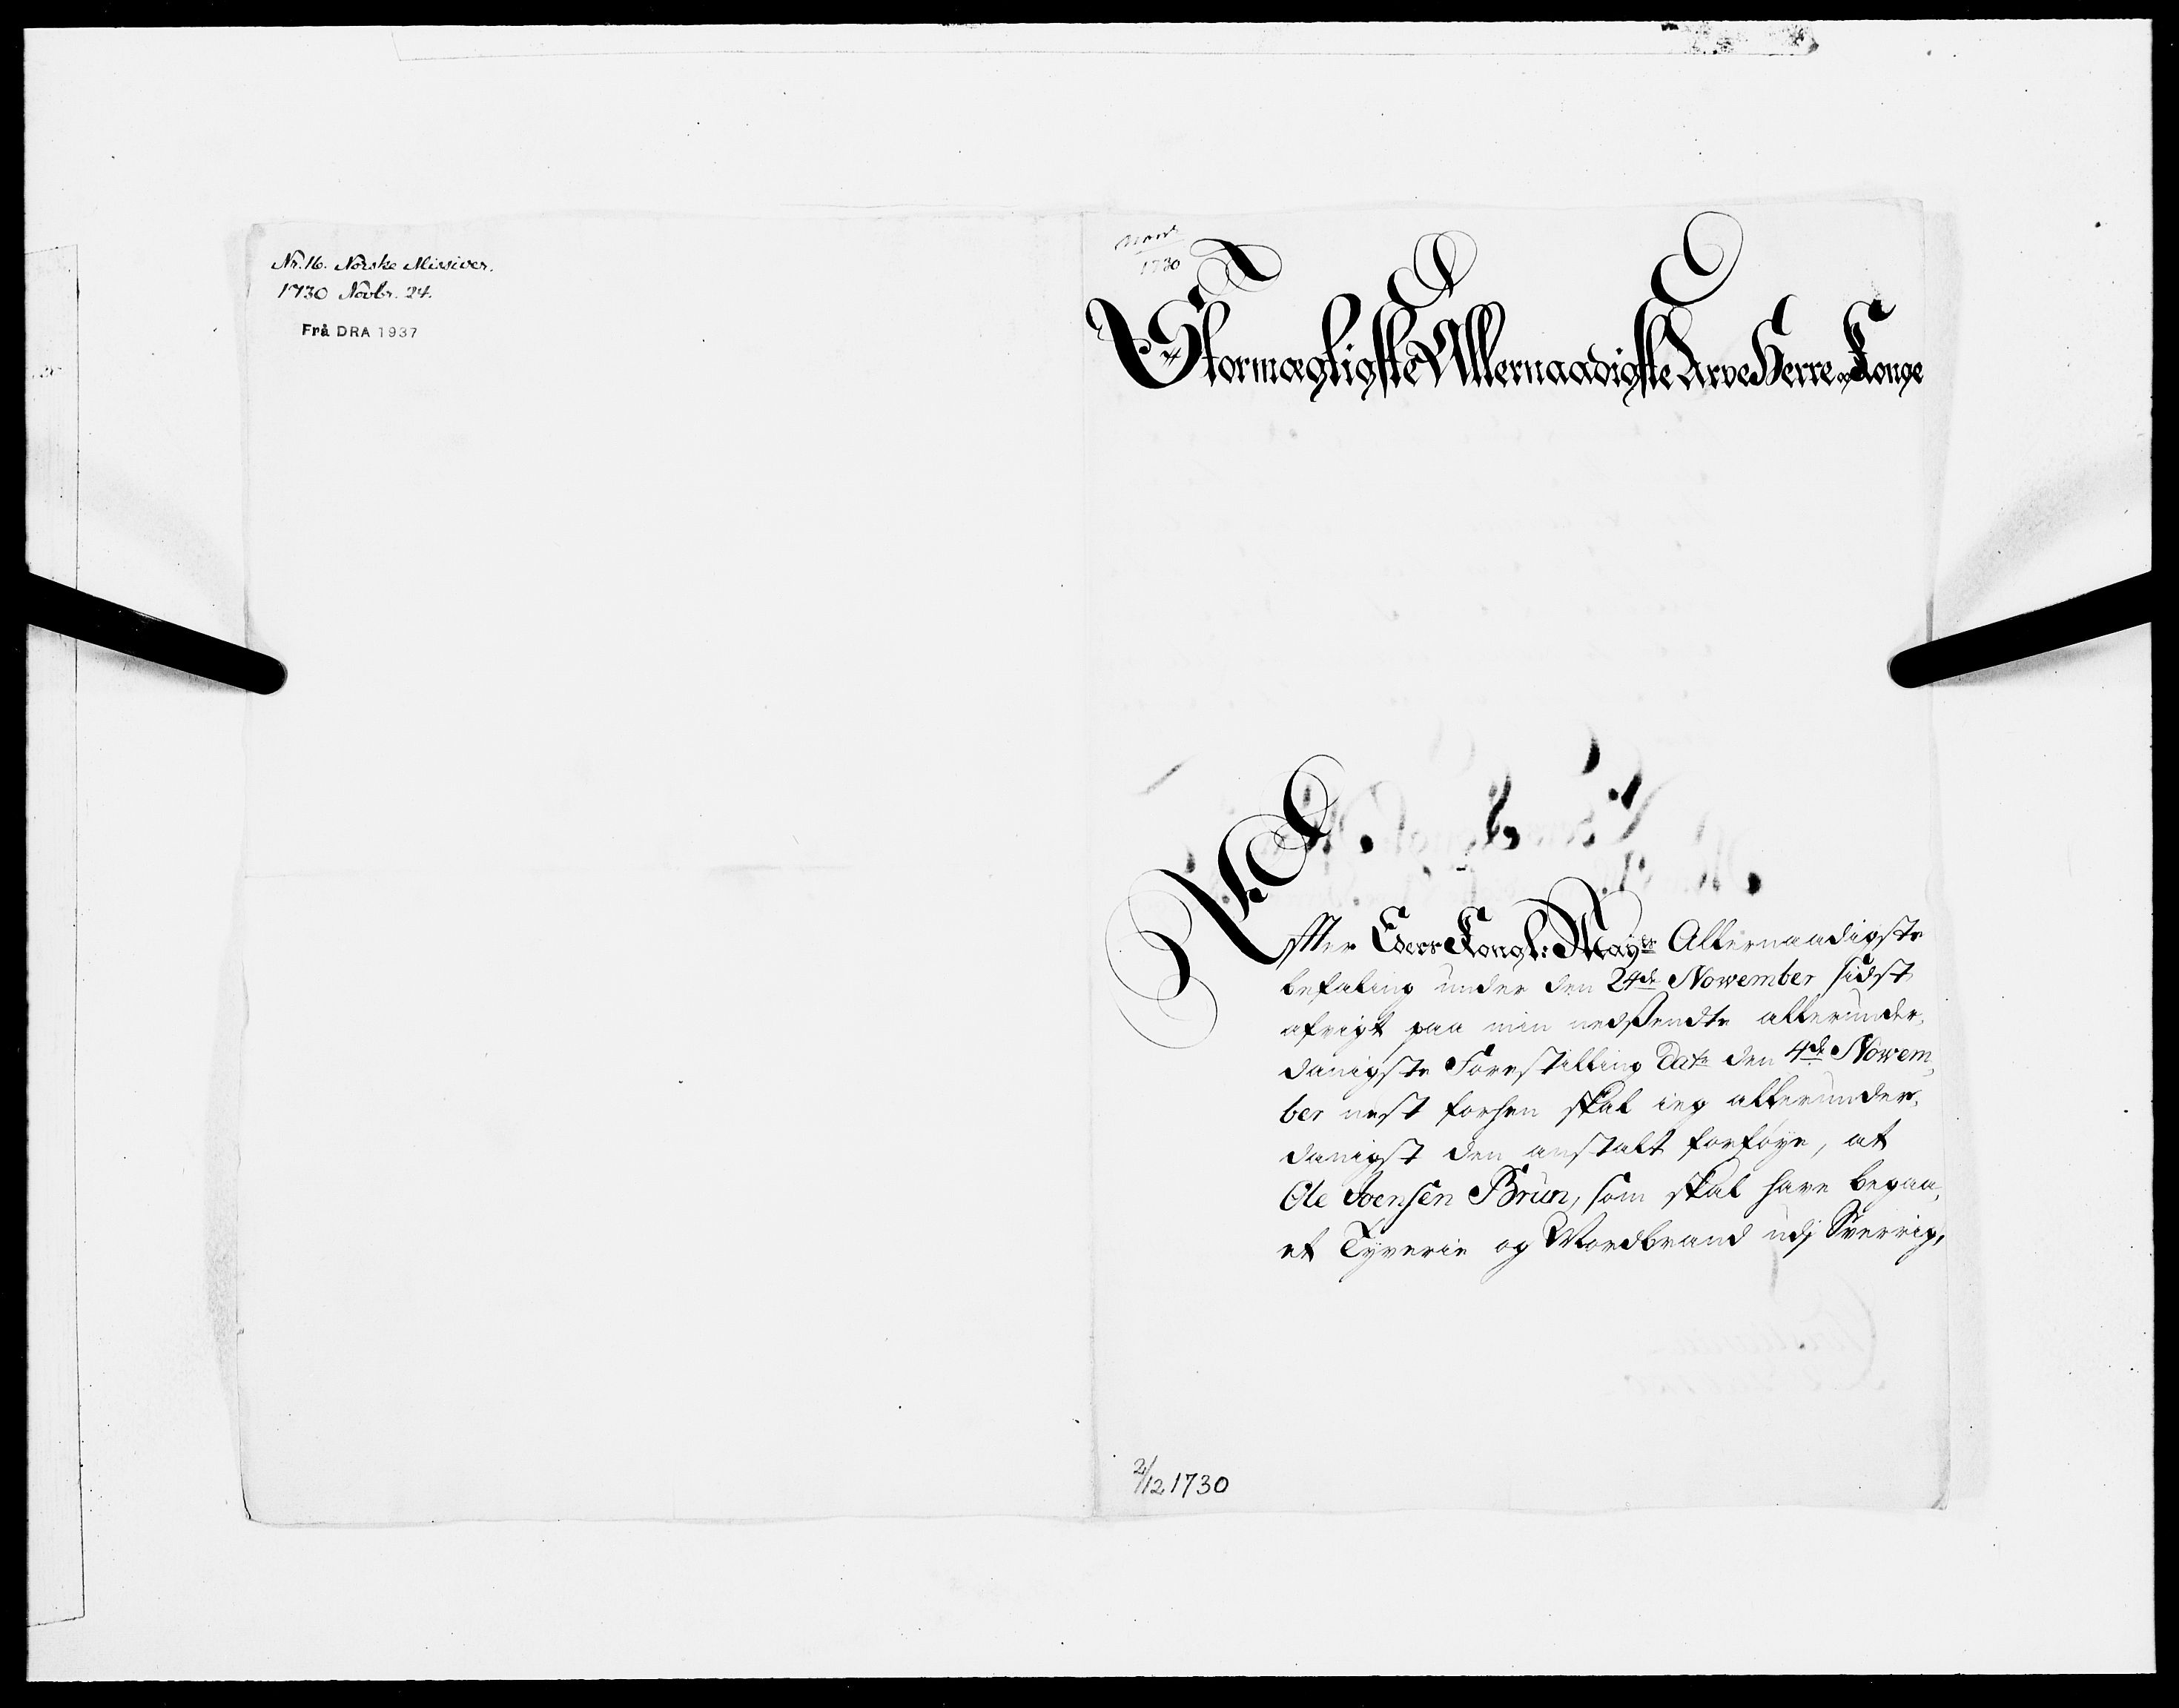 Nr. 16. Norske Missiver.
1730 Novbr. 24.
Frå DRA 1937
1730
Stormægtigste Allernaadigste Arve Herre og Konge
Effter Eders Kongl: Mayts Allernaadigste
befaling under den 24de November sidst
afvigt paa min nedsendte allerunder,
danigste Forestilling Date den 4de Novem,
ber nest forhen skal ieg allerunder,
danigst den anstalt forføye, at
Ole Joensen Brun, som skal have begaa,
et Tyverie og Mordbrand udj Sverrig,
2/12 1730